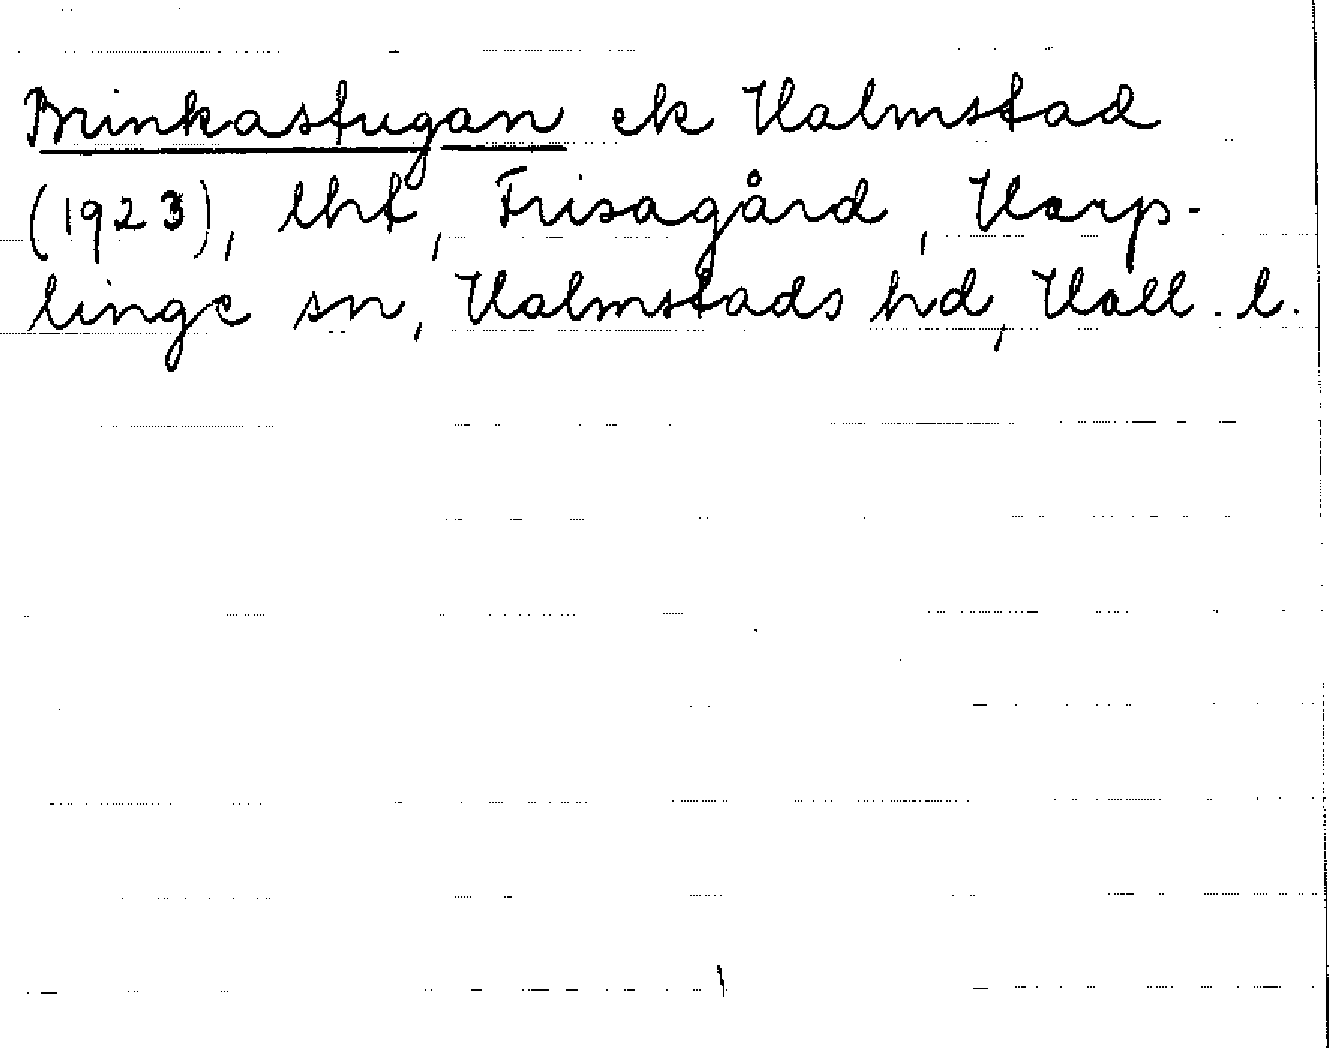 Brinkastugan ek Halmstad
(1923), lht, Frisagård, Harp-
linge sn, Halmstads hd, Hall. l.